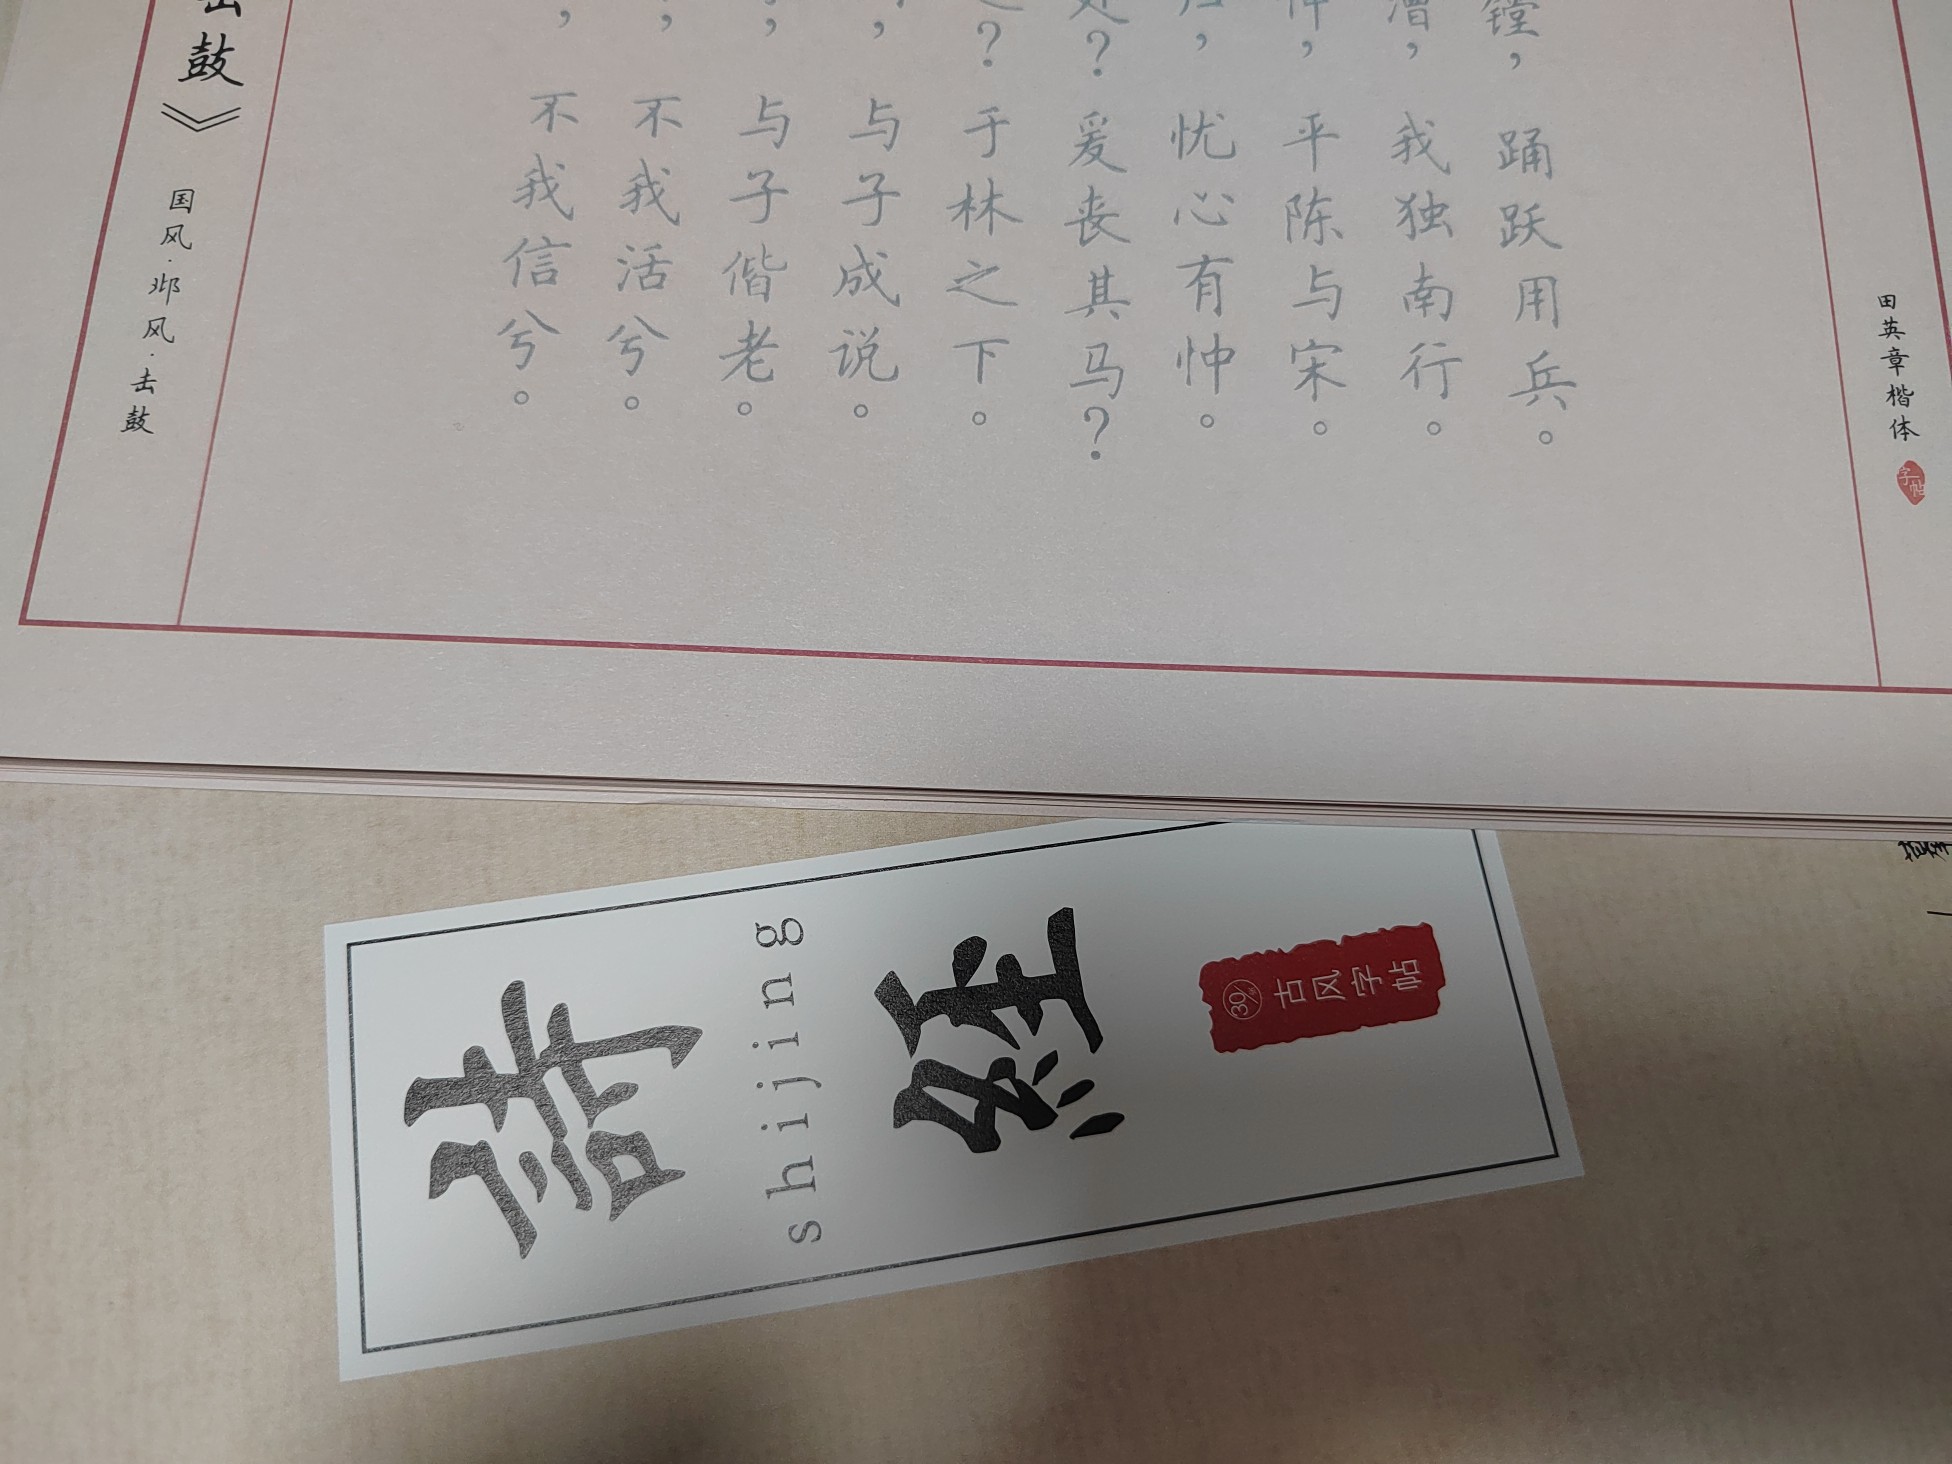 田英章楷体
字帖
镗，踊跃用兵。
漕，我独南行。
仲，平陈与宋。
，忧心有忡。
处？爰丧其马？
？于林之下。
，与子成说。
；与子偕老。
，不我活兮。
，不我信兮。
击鼓》
国风·邶风·击鼓
詩
shijing
經
30 古风字帖